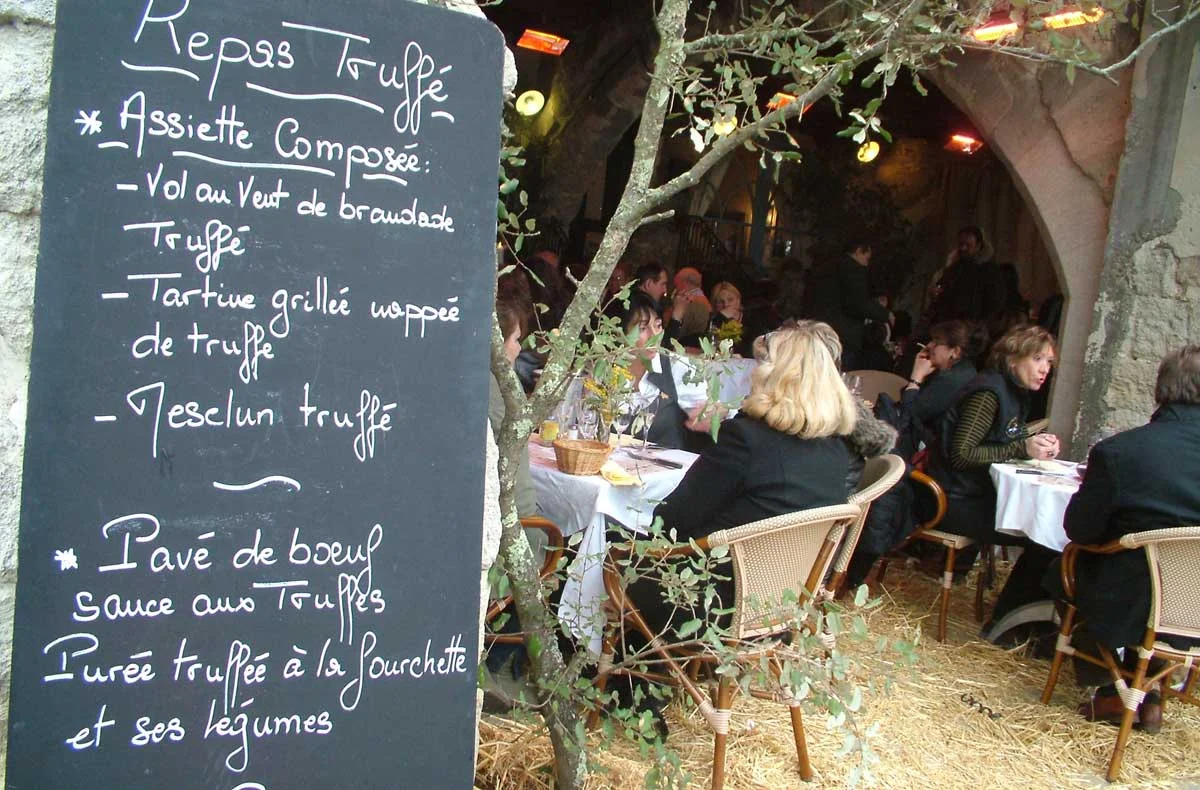 Repas Truffé
* Assiette Composée:
- Vol au Vent de brandade
Truffé
- Tartine grilleé nappée
de truffe
- Mesclun truffé
~
* Pavé de boeuf
sauce aux Truffes
Purée truffée à la fourchette
et ses légumes